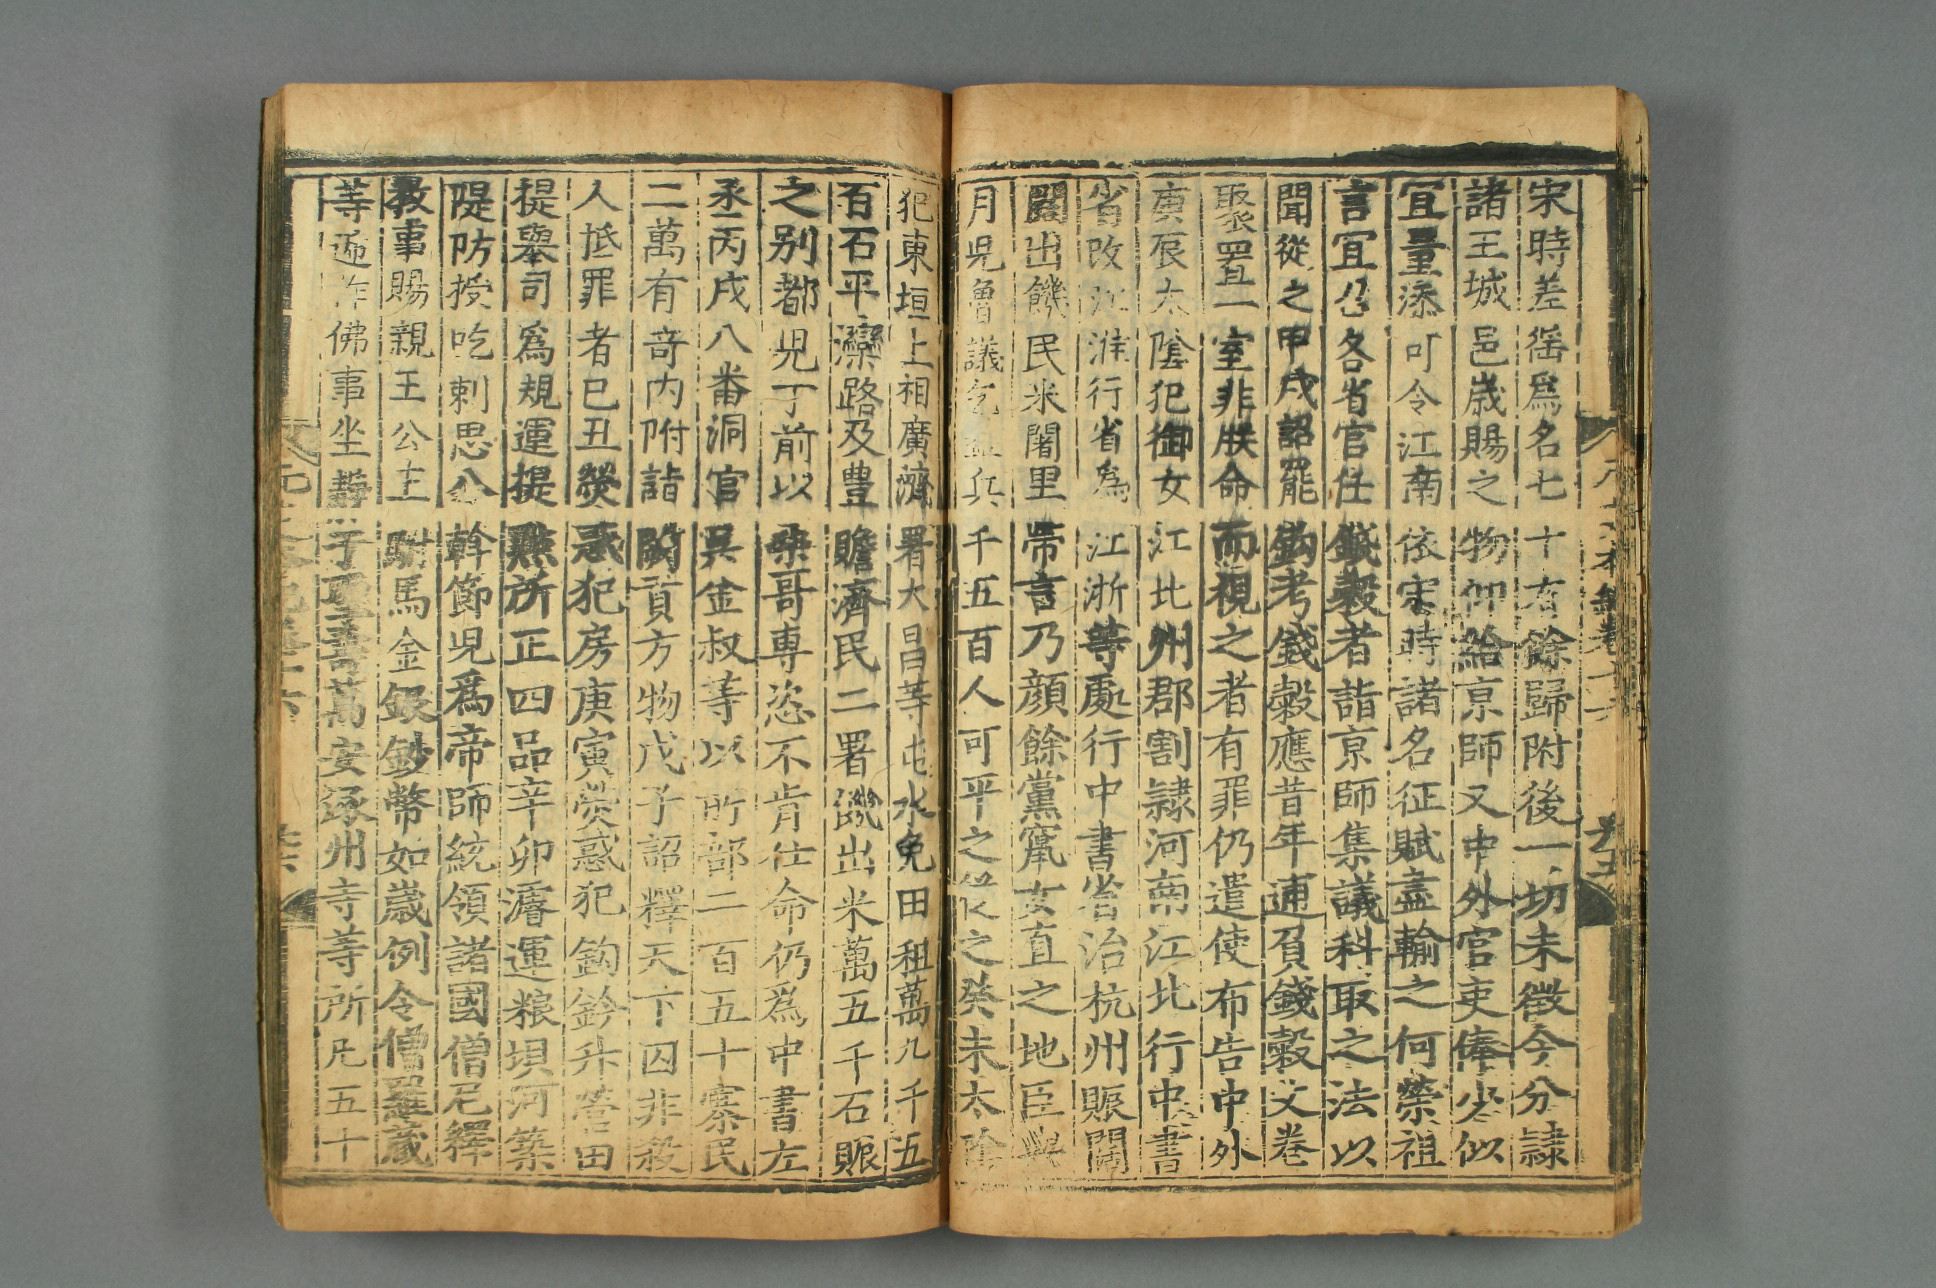 宋時差徭爲名七十有餘歸附後一切未徵今分隷
諸王城邑歳賜之物仰給京師又中外官吏俸少似
宜量添可令江南依宋時諸名征賦盡輸之何榮祖
言宜召各省官任錢榖者詣京師集議科取之法以
聞從之甲戌詔罷鈎考錢榖應昔年逋負錢榖文卷
聚置一室非朕命而視之者有罪仍遣使布告中外
庚辰太隂犯御女江北州郡割隷河南江北行中書
省改江淮行省爲江浙等處行中書省治杭州賑闊
闊出饑民米闍里帶言乃顔餘黨竄女直之地臣與
月兒魯議乞益兵千五百人可平之從之癸未太隂
犯東垣上相廣濟署大昌等屯水免田租萬九千五
百石平灤路及豊贍濟民二署饑出米萬五千石賑
之别都兒丁前以桑哥專恣不肯仕命仍爲中書左
丞丙戌八番洞官吴金叔等以所部二百五十寨民
二萬有奇内附詣闕貢方物戊子詔釋天下囚非殺
人抵罪者巳丑熒惑犯房庚寅熒惑犯鈎鈐升營田
提舉司爲規運提點所正四品辛卯濬運粮壩河築
隄防授吃剌思八斡節兒爲帝師統領諸國僧尼釋
教事賜親王公主駙馬金銀鈔幣如歳例令僧羅藏
等遞作佛事坐靜于聖壽萬安涿州寺等所凡五十